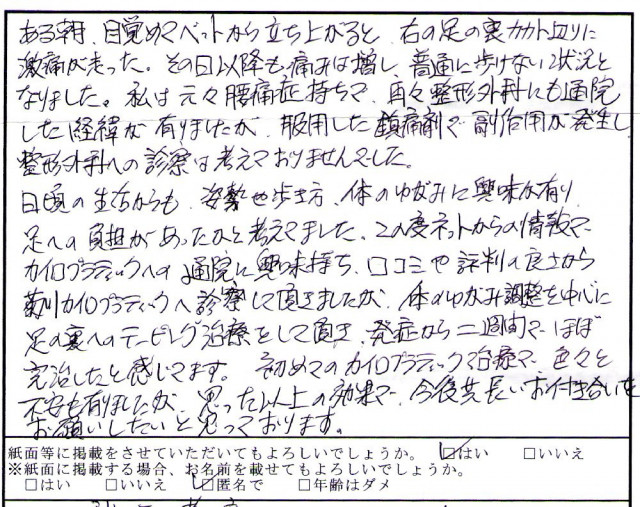 ある朝、目覚めてベットから立ち上がると、右の足の裏カカト辺りに
激痛が走った。その日以降も痛みは増し、普通に歩けない状況と
なりました。私は元々腰痛症持ちで、再々整形外科にも通院
した経緯が有りましたが、服用した鎮痛剤で副作用が発生し
整形外科への診察は考えておりませんでした。
日頃の生活からも、姿勢や歩き方、体のゆがみに興味が有り
足への負担があったのと考えてました。この度ネットからの情報で
カイロプラティックへの通院に興味持ち、口コミや評判の良さから
菊川カイロプラティックへ診察して頂きましたが、体のゆがみ調整を中心に
足の裏へのテーピング治療をして頂き、発症から二週間でほぼ
完治したと感じてます。初めてのカイロプラティック治療で、色々と
不安も有りましたが、思った以上の効果で、今後共長いお付き合いを
お願いしたいと思っております。
紙面等に掲載をさせていただいてもよろしいでしょうか。 ☑はい □いいえ
※紙面に掲載する場合、お名前を載せてもよろしいでしょうか。
□はい □いいえ ☑匿名で □年齢はダメ